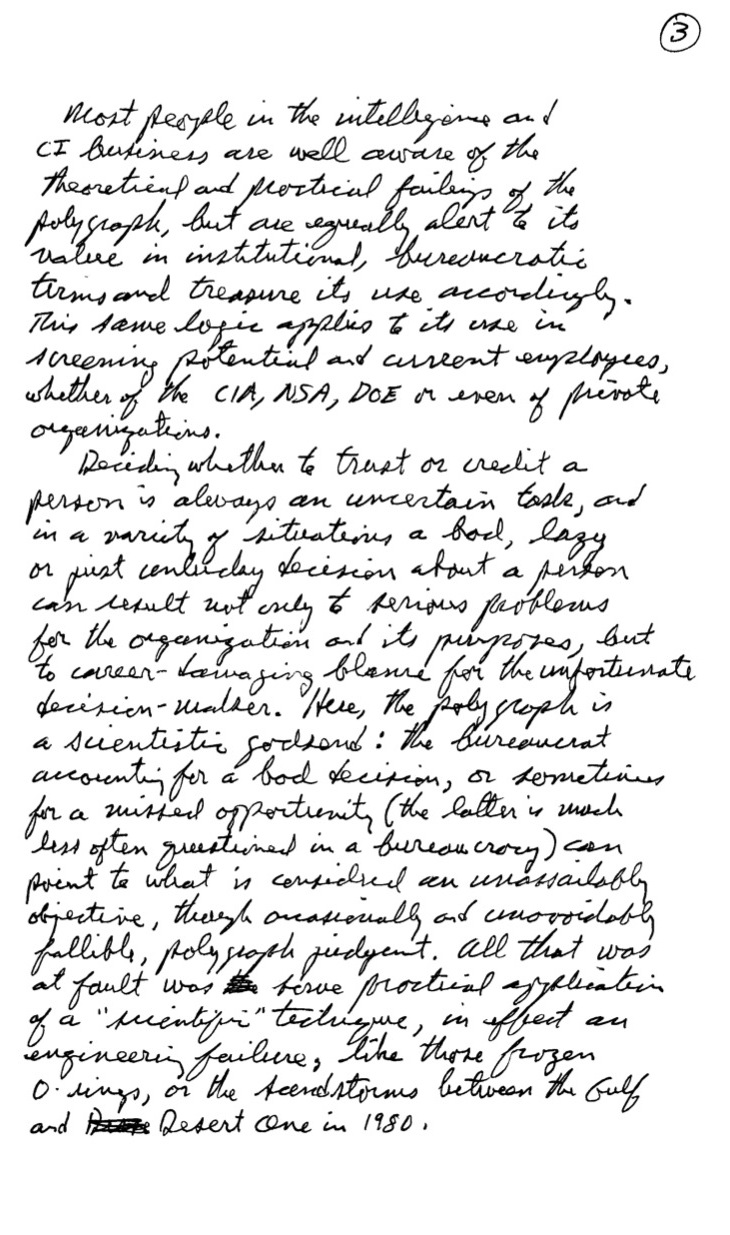 3
Most people in the intelligence and
CI business are well aware of the
theoretical and practical failings of the
polygraph, but are equally alert to its
value in institutional, bureaucratic
terms and treasure its use accordingly.
This same logic applies to its use in
screening potential and current employees,
whether of the CIA, NSA, DOE or even of private
organizations.
Deciding whether to trust or credit a
person is always an uncertain task, and
in a variety of situations a bad, lazy
or just unlucky decision about a person
can result not only to serious problems
for the organization and its purposes, but
to career-damaging blame for the unfortunate
decision-maker. Here, the polygraph is
a scientistic godsend: the bureaucrat
accounting for a bad decision, or sometimes
for a missed opportunity (the latter is much
less often questioned in a bureaucracy) can
point to what is considered an unassailably
objective, though occasionally and unavoidably
fallible, polygraph judgment. All that was
at fault was some practical application
of a "scientific" technique, in effect an
engineering failure, like those frozen
O-rings, or the sandstorms between the Gulf
and Desert One in 1980.